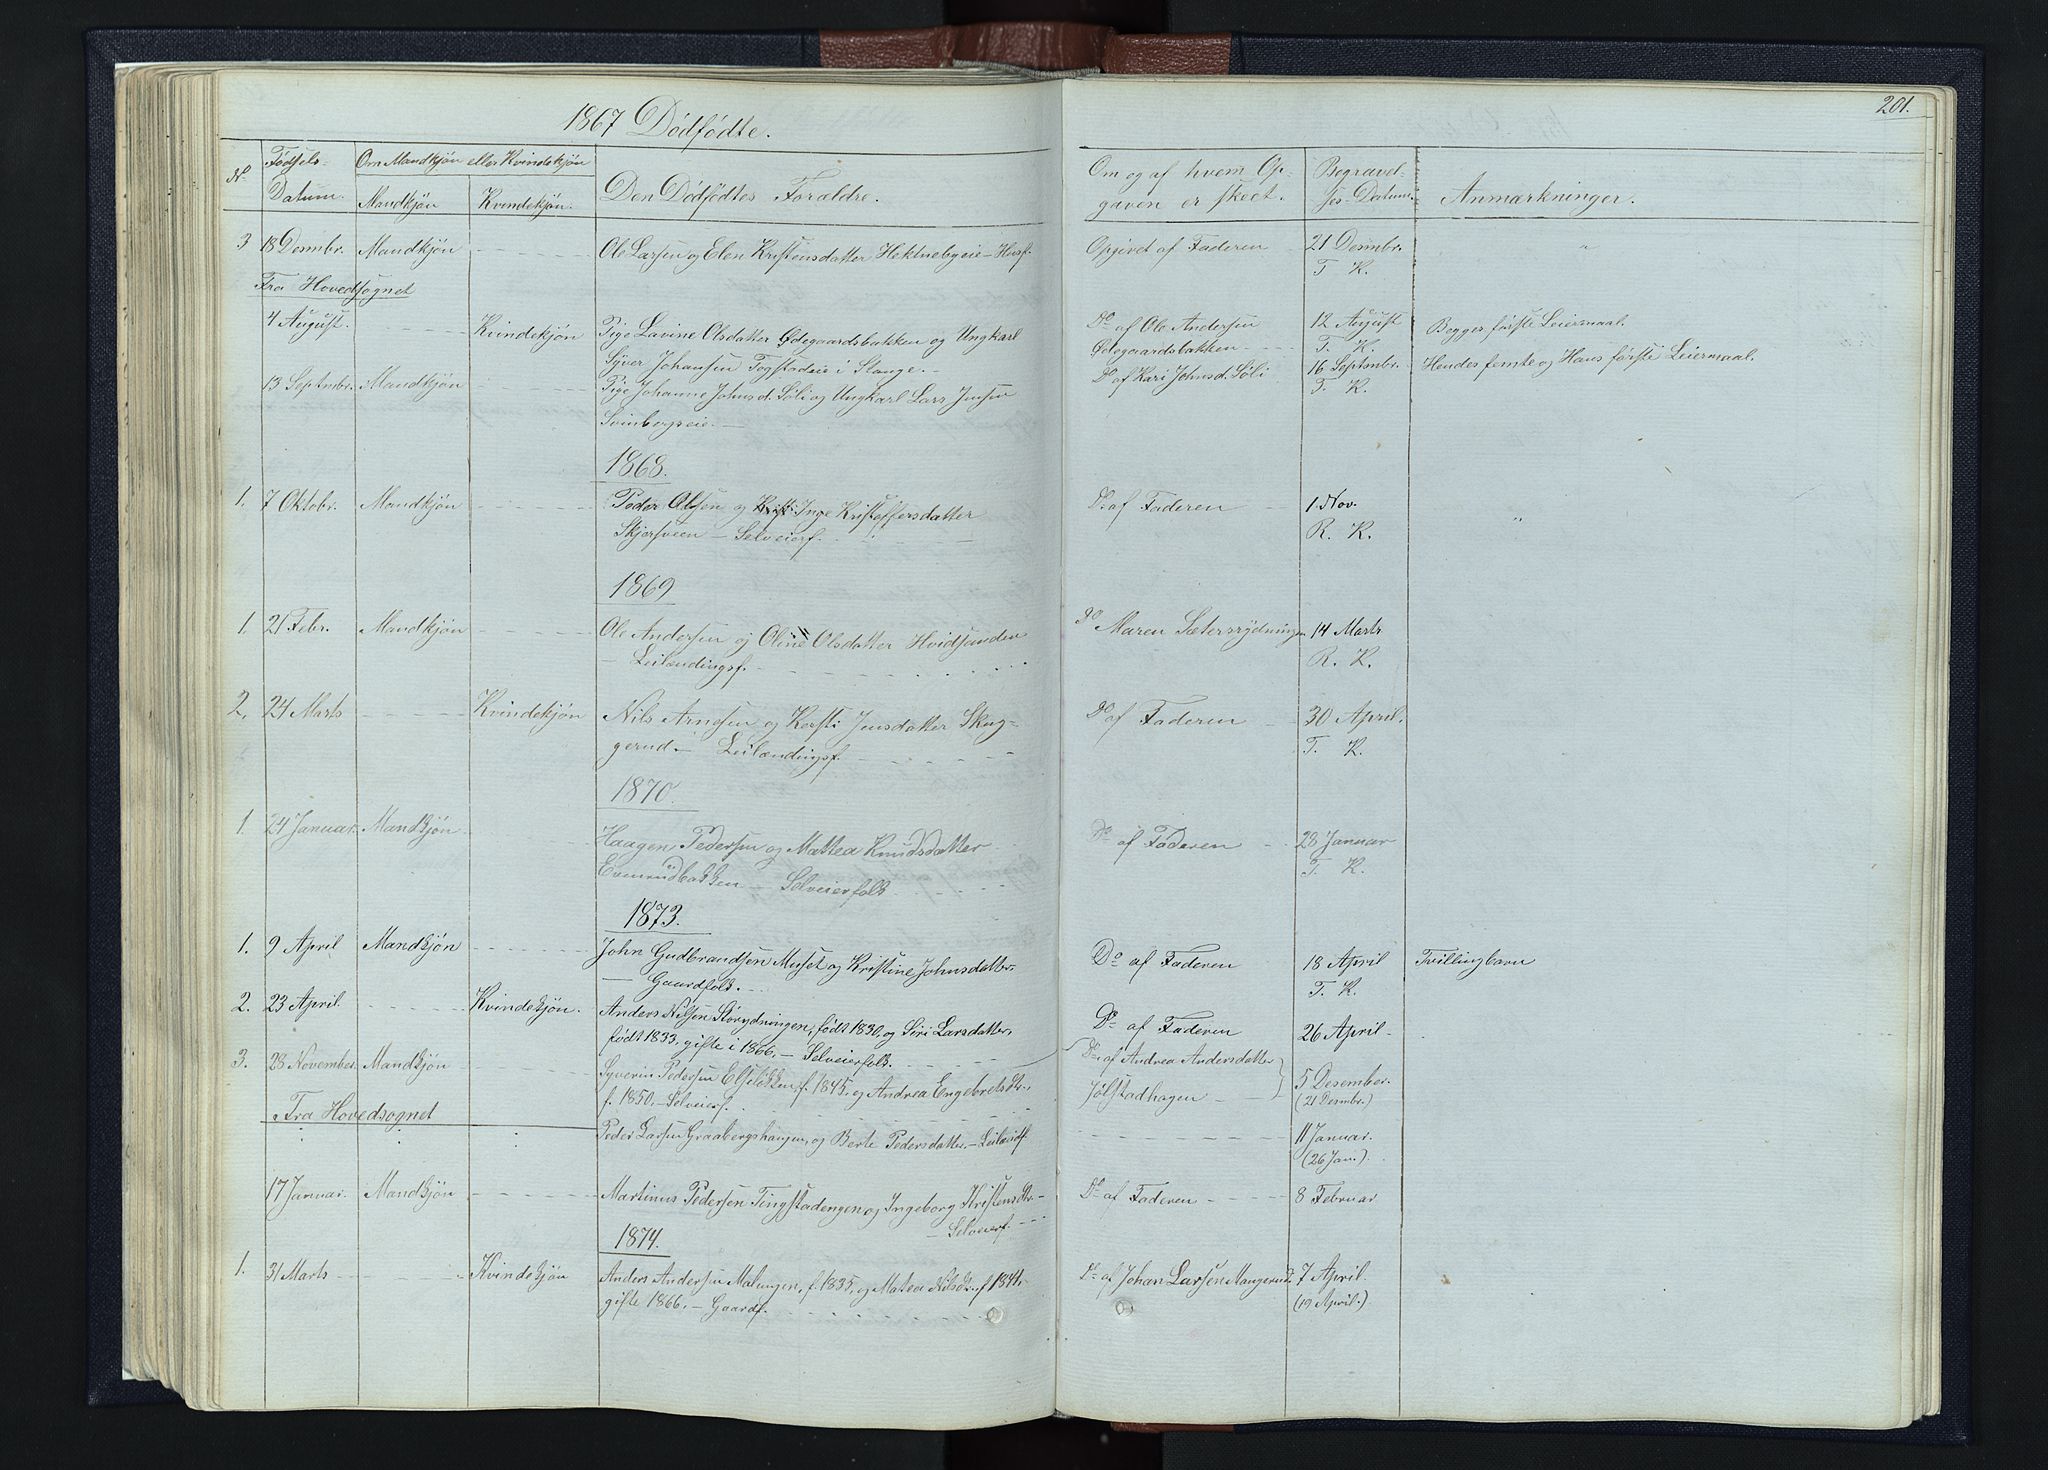 201.
1867 Dödfödte.
No. Födsels-Datum. Om Mandkjön eller Kvindekjön Mandkjön Kvindekjön. Den Dödfödtes Forældre. Om og af hvem Opgaven er skeet. Begravelses-Datum. Anmærkninger.
3 18 Desmbr. Mandkjön Ole Larsen og Elen Kristensdatter Hektnebyeie – Husf. Opgivet af Faderen 21 Desmbr. "
T. K.
Fra Hovedsognet
4 August. Kvindekjön Pige Lavine Olsdatter Ödegaardsbakken og Ungkarl Do af Ole Andersen 12 August Begges förste Leiermaal.
Syver Johansen Togstadeie i Stange. – Ödegaardsbakken T. K.
13 Septmbr. Mandkjön Pige Johanne Johnsd. Söli og Ungkarl Lars Jensen Do af Kari Johnsd. Söli 16 Septmbr. Hendes femte og Hans förste Leiermaal.
Svinbergseie. – T. K.
1868.
1. 7 Oktobr. Mandkjön Peder Olsen og Inge Kristoffersdatter Do af Faderen 1. Nov. "
Skjærsveen – Selveierf. R. K.
1869
1. 21 Febr. Mandkjön Ole Andersen og Oline Olsdatter Hvidsanden Do Maren Sætersrydningen 14 Marts
– Leilændingsf. R. K.
2. 24 Marts Kvindekjön Nils Arnesen og Kersti Jensdatter Skug- Do af Faderen 30 April.
gerud. – Leilændingsf. T. K.
1870.
1. 24 Januar. Mandkjön Haagen Pedersen og Mattea Knudsdatter Do af Faderen 28 Januar
Evenrudbakken – Selveierfolk T. K.
1873.
1. 9 April Mandkjön John Gudbrandsen Muset og Kristine Johnsdatter. Do af Faderen 18 April Tvillingbarn
– Gaardfolk. T. K.
2. 23 April. Kvindekjön. Anders Nilsen Storrydningen, födt 1830. og Siri Larsdatter, Do af Faderen 26 April
födt 1833. gifte i 1866. – Selveierfolk.
3. 28 November. Mandkjön Syverin Pedersen f. 1845. og Andrea Engebretsdtr. Do af Andrea Andersdatter 5 Desember.
f. 1850. – Selveierf. Jölstadhagen (21 Desmbr.)
Fra Hovedsognet
Peder Larsen Graabergshaugen og Berte Pedersdatter. – Leilændf. 11 Januar.
(26 Jan.)
17 Januar. Mandkjön Martinus Pedersen Tingstadengen og Ingeborg Kristensdtr. Do af Faderen 8 Februar
– Selveierf.
1874.
1. 31 Marts Kvindekjön Anders Andersen Malungen, f. 1835, og Matea Nilsdtr. f 1841. Do af Johan Larsen Mangerud. 7 April.
gifte 1866. – Gaardf. (19 April.)